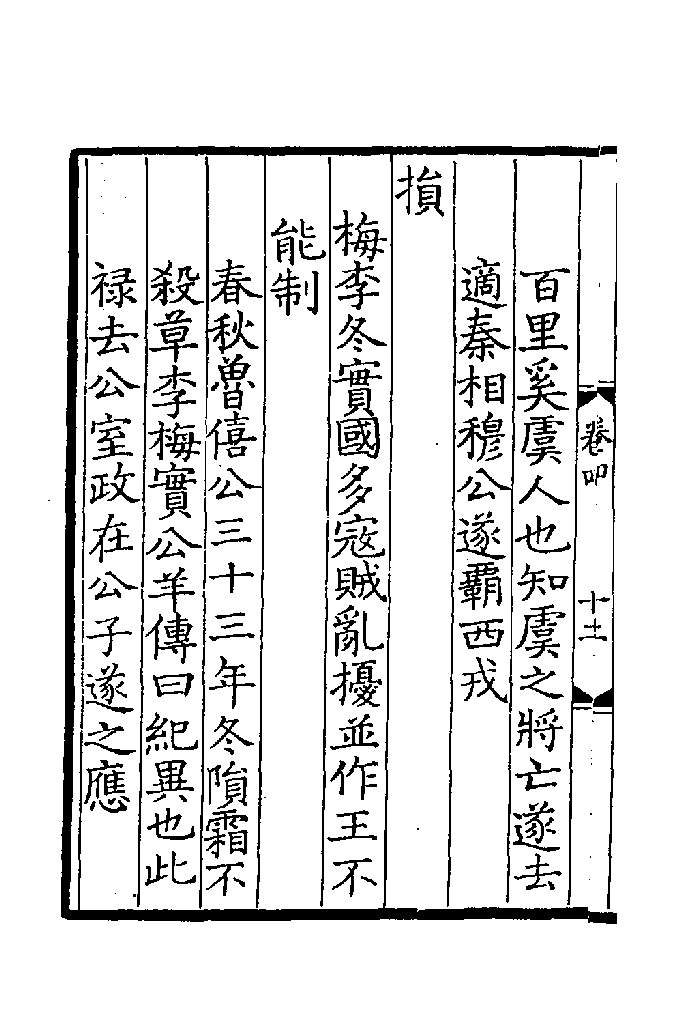 百里奚虞人也知虞之將亡遂去
適秦相穆公遂霸西戎
損
梅李冬實國多寇賊亂擾並作王不
能制
春秋魯僖公三十三年冬隕霜不
殺草李梅實公羊傳曰紀異也此
禄去公室政在公子遂之應
卷四
十七